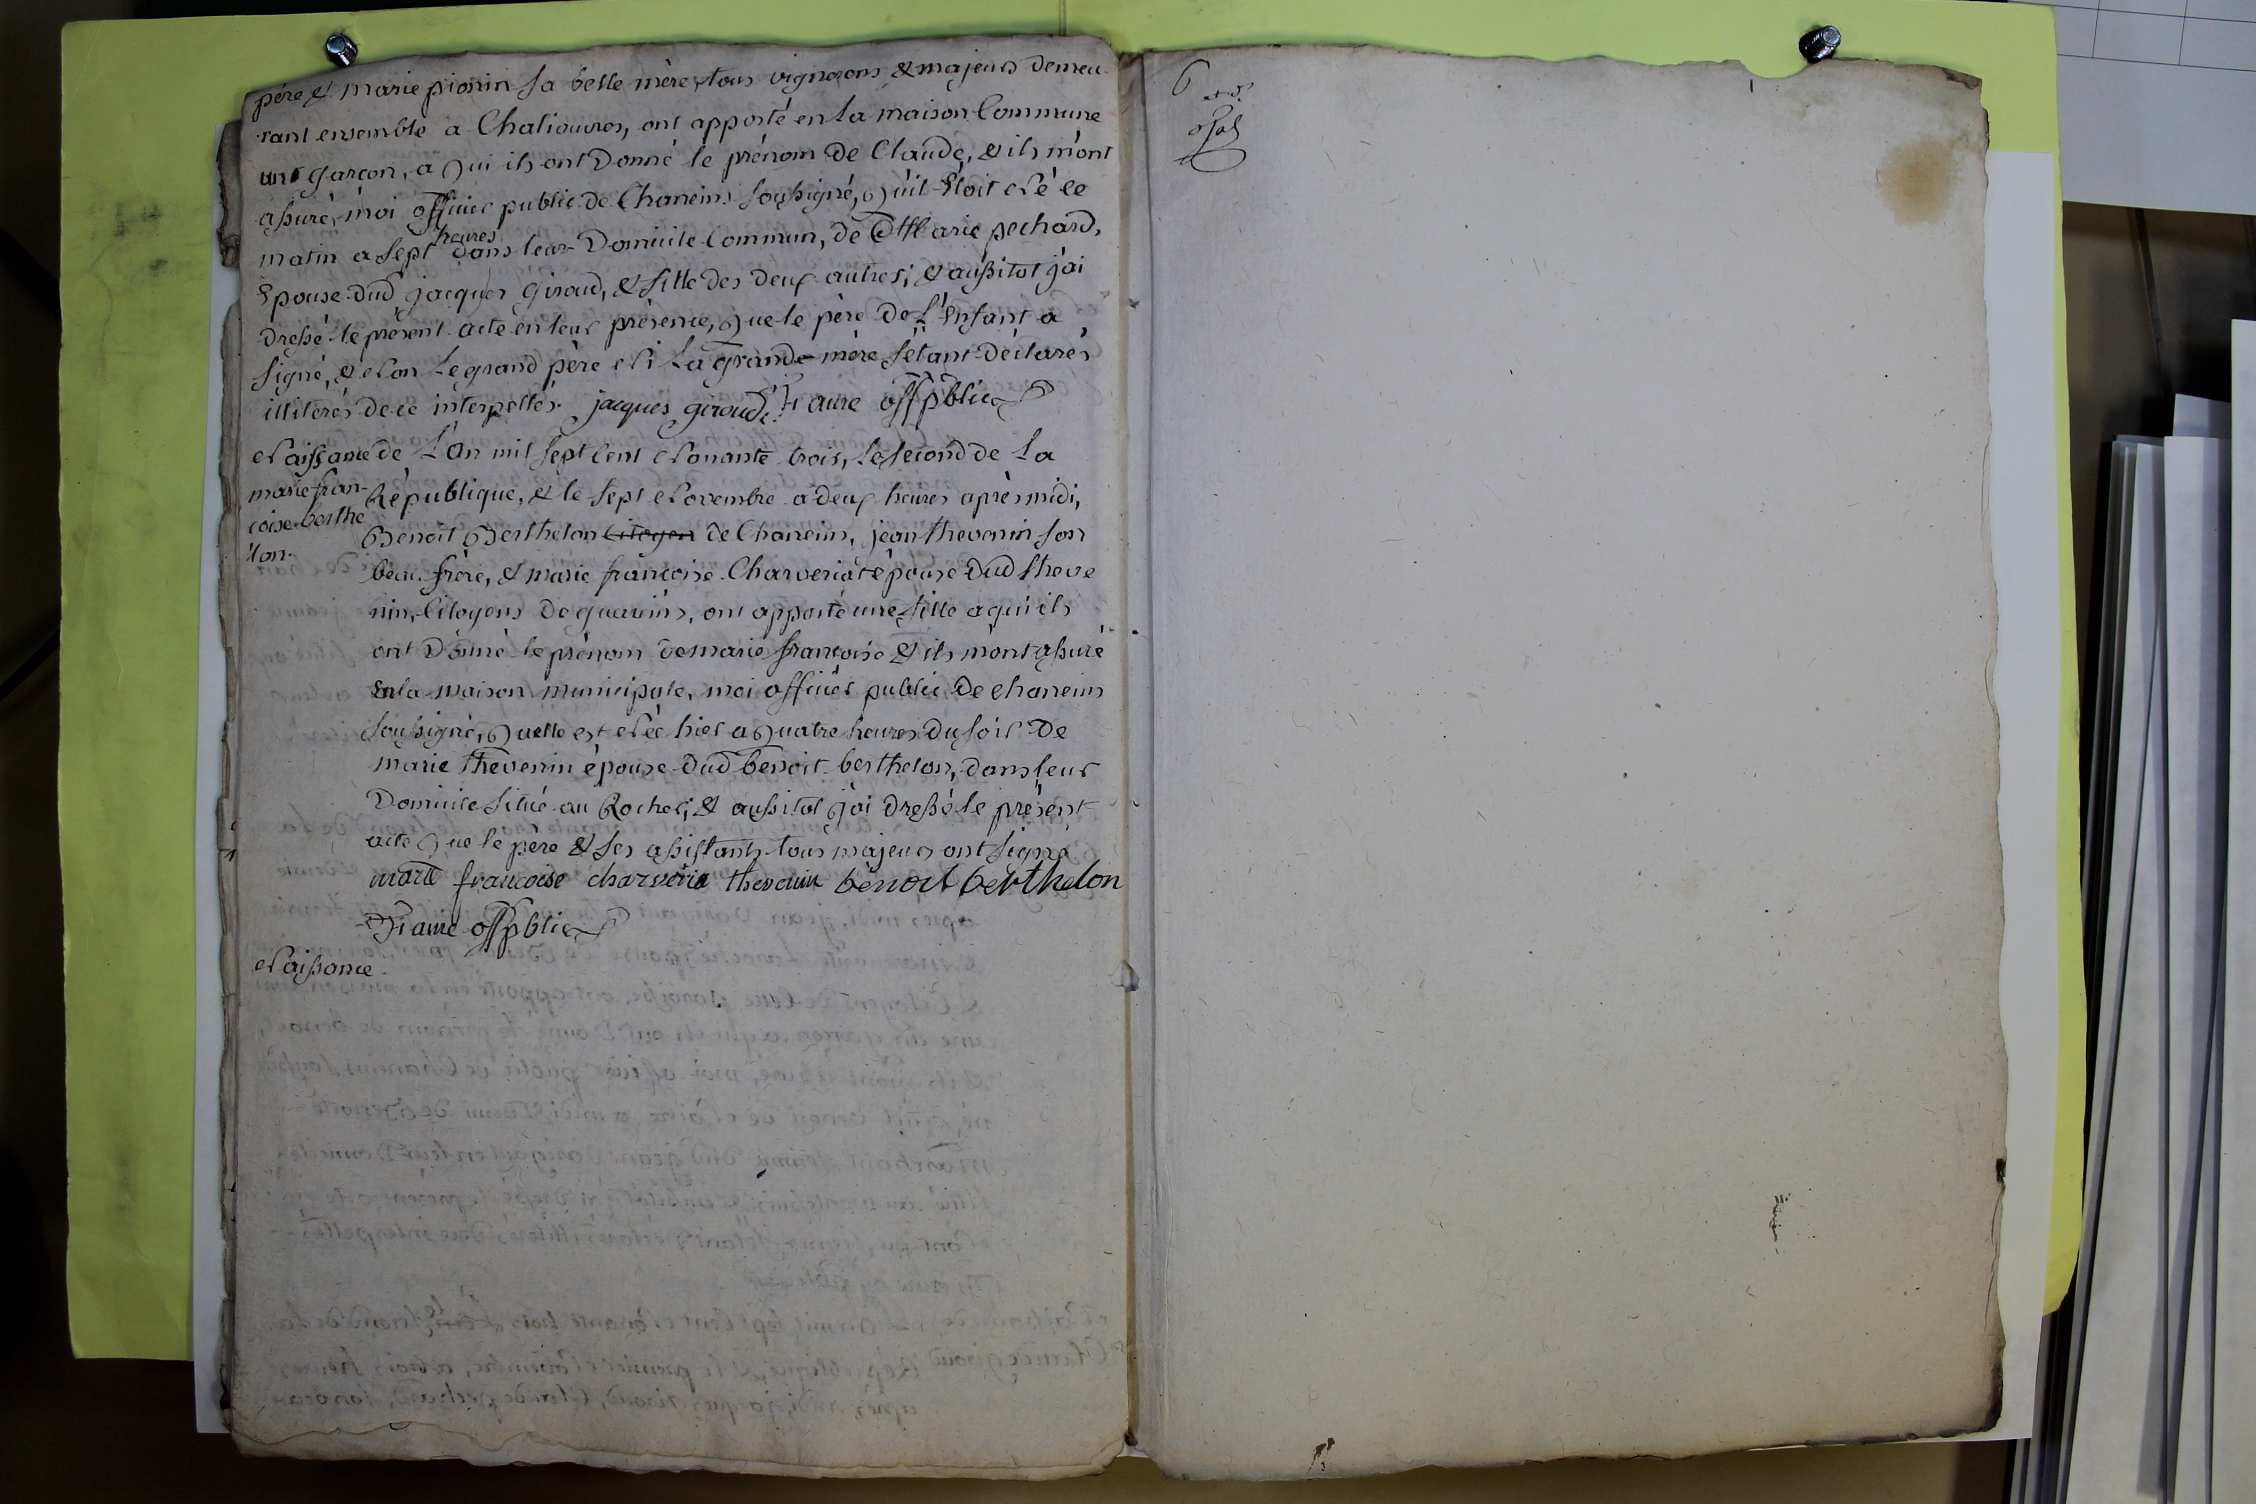 père & marie pionin sa belle mère, tous vignerons & majeurs demeu-
rant ensemble a Chaliouvres, ont apporté en la maison Commune
un garçon, a qui ils ont Donné le prénom de Claude, & ils m'ont
assuré, moi officier public de Chaneins soussigné, qu'il étoit Né ce
matin a sept heures dans leur Domicile Commun, de Marie pechard,
Epouse dud jacques giraud, & fille des deux autres; & aussitot j'ai
dressé le présent acte en leur présence, que le père de L'Enfant a
signé, & Non Le grand père Ni La grande mère s'étant déclarés
illiterés de ce interpellés. jacques giraud, off pblic
Naissance de
marie fran-
çoise berthe
lon.
L'An mil sept Cent Nonante trois, Le second de La
République, & le sept Novembre a deux heures après midi,
Benoit Berthelon Citoyen de Chaneins, jean thevenin son
beau frère, & marie françoise Charveriat épouse dud theve
nin, Citoyens de ont apporté une fille a qui ils
ont Donné le prénom de marie françoise & ils m'ont assuré
en la maison municipale, moi officier public de chaneins
soussigné, quelle est Née hier a quatre heures du soir de
marie thevenin épouse dud benoit berthelon, dans leur
Domicile situé au Rocher; & aussitot j'ai dressé le présent
acte que le père & ses assistants tous majeurs ont signé
marie francoise charveria thevenin benoit berthelon
off pblic
Naissance.
6